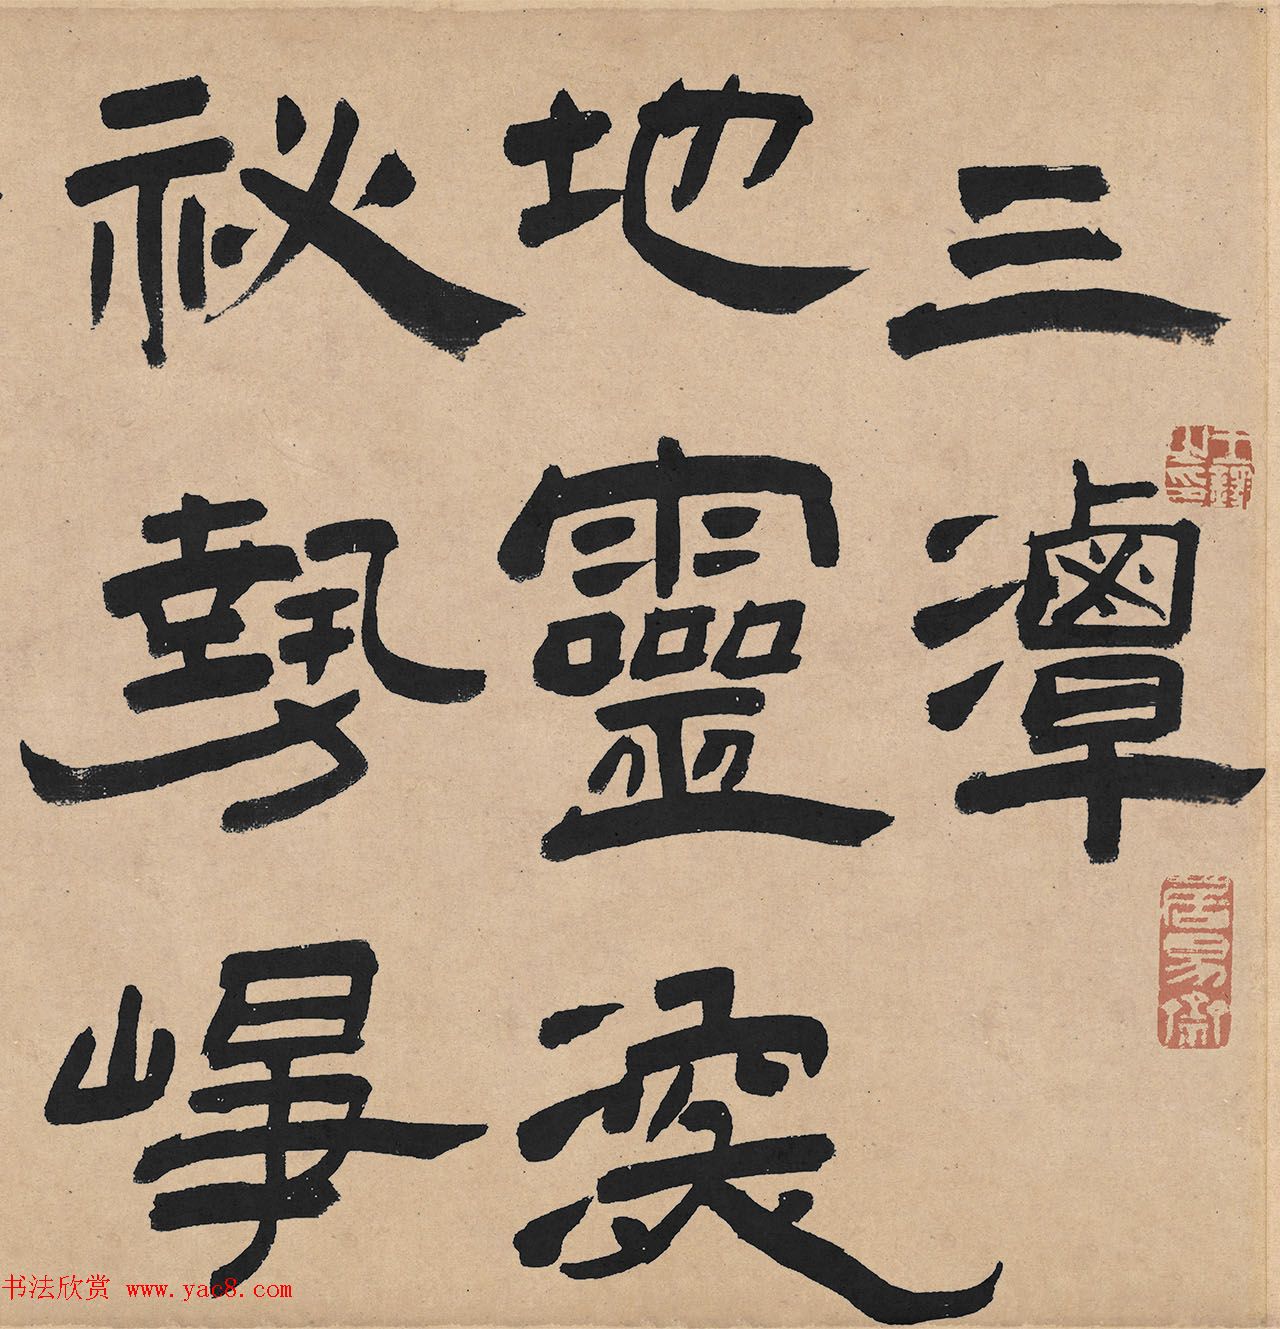 三潭
地靈
祕勢崢
书法欣赏 www.yac8.com